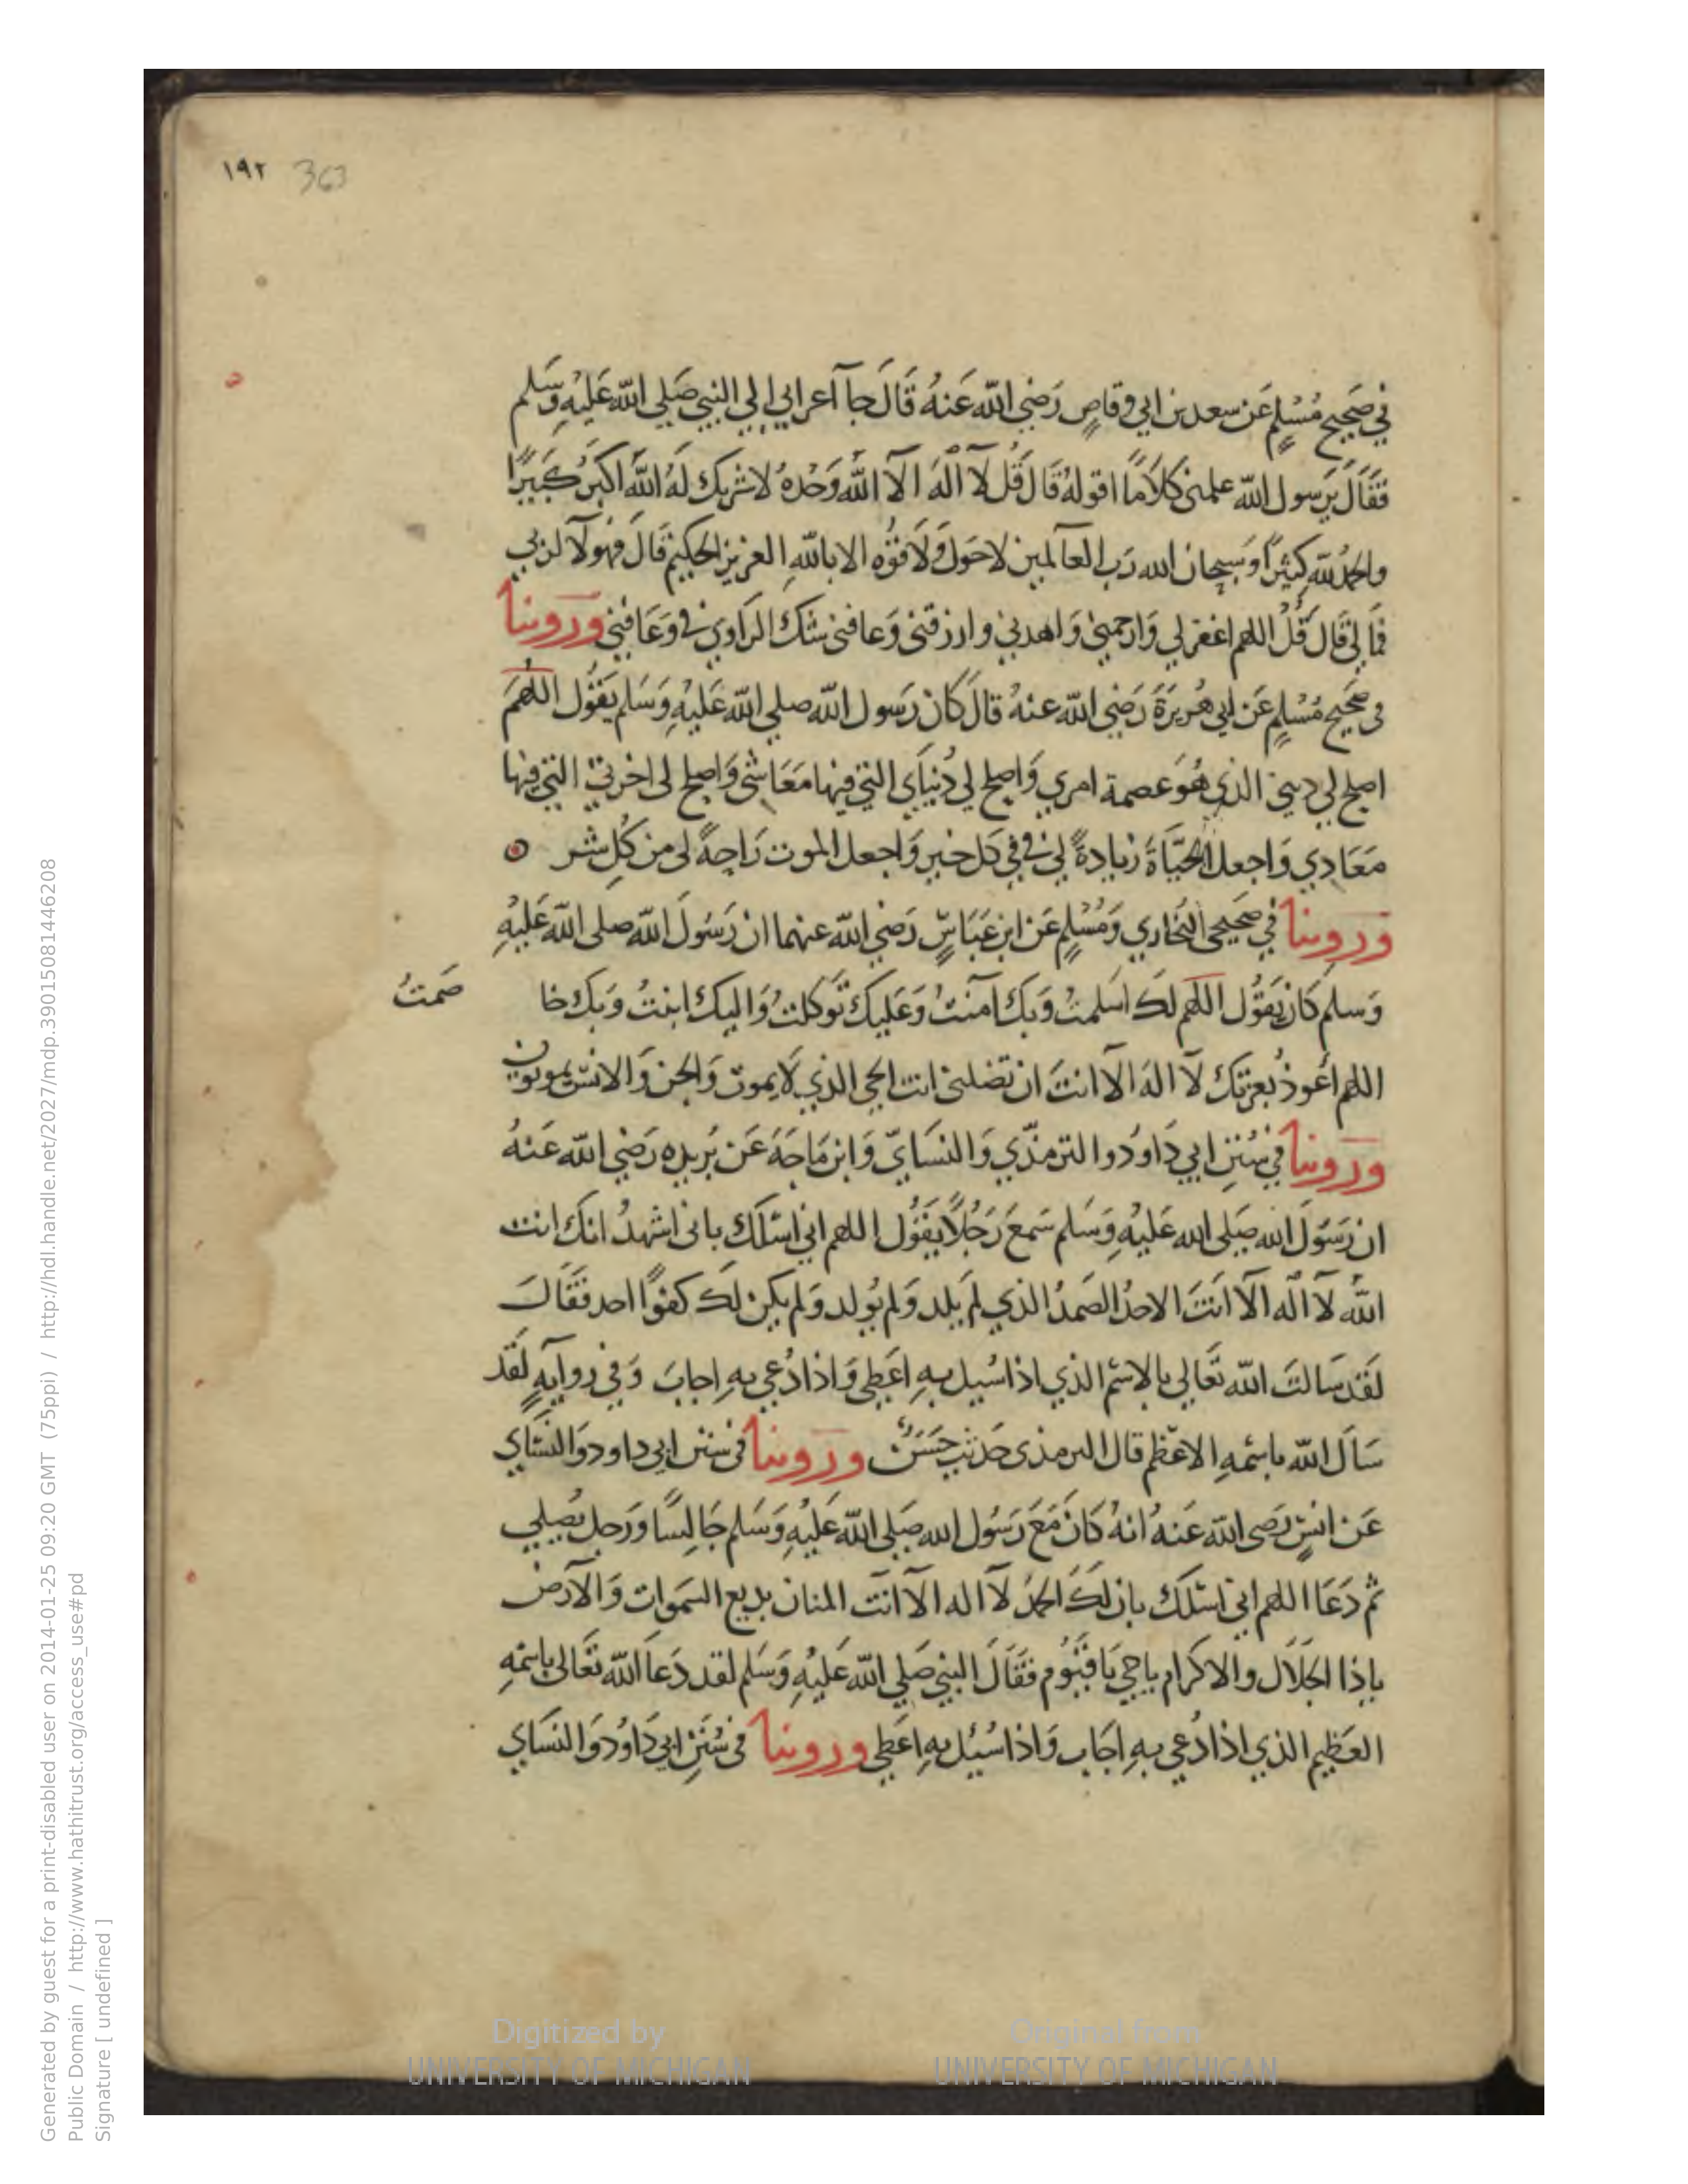 ١٩٢ 363
في صَحيح مُسْلِمٍ عَن سعد بن ابي وقاصٍ رَضي الله عَنهُ قَالَ جآ أعرابي الي النبي صَلي الله عَليْهِ وَسَلم
فَقَالَ يَرسول الله علمني كلاَمًا اقولهُ قَالَ قُل لآ الٰهَ الآ اللهُ وَحْدهُ لا شريك لَهُ اللهُ اكبَرُ كَبيرًا
والحمدُ للهِ كثيرًا وَسُبحان الله رَب العآلمين لاحَول وَلاَ قوُه الا باللهِ العزيز الحكيم قَالَ فهولآ لربي
فَمَا لي قَال قُلْ اللهم اغفر لي وَارحمني وَاهدني وارزقني وَعافني شك الراوي في وَعَافني وروينا
في صَحيح مُسْلِمٍ عَن ابي هُريرَةَ رَضي الله عنهُ قالَ كَان رَسول الله صلي الله عَليْهِ وَسَلم يَقُول اللهمَّ
اصلح لي ديني الذي هُوَ عصمة امري وَاصلح لي دُنيَاي التي فيها مَعَاشي وَاصلح لي اخرتي التي فيها
مَعَادي وَاجعل الحيَاةَ زيادةً لي في كل خير وَاجعل الموت رَاحةً لي من كُلِ شر
وروينا في صَحيحي البُخاري وَمُسْلِمٍ عَن ابن عَبَاسٍّ رَضي الله عنهما ان رَسُولَ الله صلى الله عَليْهِ
وَسلم كَان يَقُول اللهم لَكَ اسَلمتُ وَبكَ آمَنتُ وَعَليك تَوكلتُ وَاليك انبتُ وَبك خا صَمتُ
اللهم اعُوذ بعزتك لآ الهَ الآ انتَ ان تضلني انت الحي الذي لاَ يموت وَالجن وَالانس يموتون
وروينا في سُنَنِ ابي دَاودُ والترمذّي وَالنسَايّ وَابن مَاجَة عَن بُريده رَضي الله عَنهُ
ان رَسُولَ الله صَلي الله عَليْهِ وَسَلم سَمعَ رَجُلاً يَقُول اللهم اني اسْئلك باني اشهدُ انك انت
اللهُ لآ الٰه الآ انتَ الاحدُ الصَمدُ الذي لم يَلد وَلم يُولد وَلم يكن لَكَ كفوًا احد فقَالَ
لَقَد سَالتَ الله تَعَالي بالاسْم الذي اذا سُيل بهِ اعَطي وَاذا دُعي بهِ اجابَ وَفي روايَةٍ لقَد
سَالَ الله باسْمهِ الاعظم قال الترمذى حَديث حَسَنٌ وروينا في سنن ابي داود وَالنسَّاي
عَن انسٍ رَضي الله عَنهُ انهُ كَانَ مَعَ رَسُول الله صَلي الله عَليْهِ وَسَلم جَالِسًا وَرَجل يُصلي
ثم دَعَا اللهم اني اسْئلكَ بان لَكَ الحمدُ لآ اله الآ انتَ المنان بديع السَموات وَالآرض
ياذا الجلاَل والاكرام ياحي يَا قيُوم فقَالَ النبي صَلي الله عَليْهِ وَسَلم لقد دَعَا الله تعَالي باسْمهِ
العَظيم الذي اذا دُعي بهِ اجَاب وَاذا سُيئل بهِ اعَطي وروينا في سُنَنِ ابي دَاودُ وَالنسَاي
Generated by guest for a print-disabled user on 2014-01-25 09:20 GMT (75ppi) / http://hdl.handle.net/2027/mdp.39015081446208
Public Domain / http://www.hathitrust.org/access_use#pd
Signature [ undefined ]
Digitized by
UNIVERSITY OF MICHIGAN
Original from
UNIVERSITY OF MICHIGAN